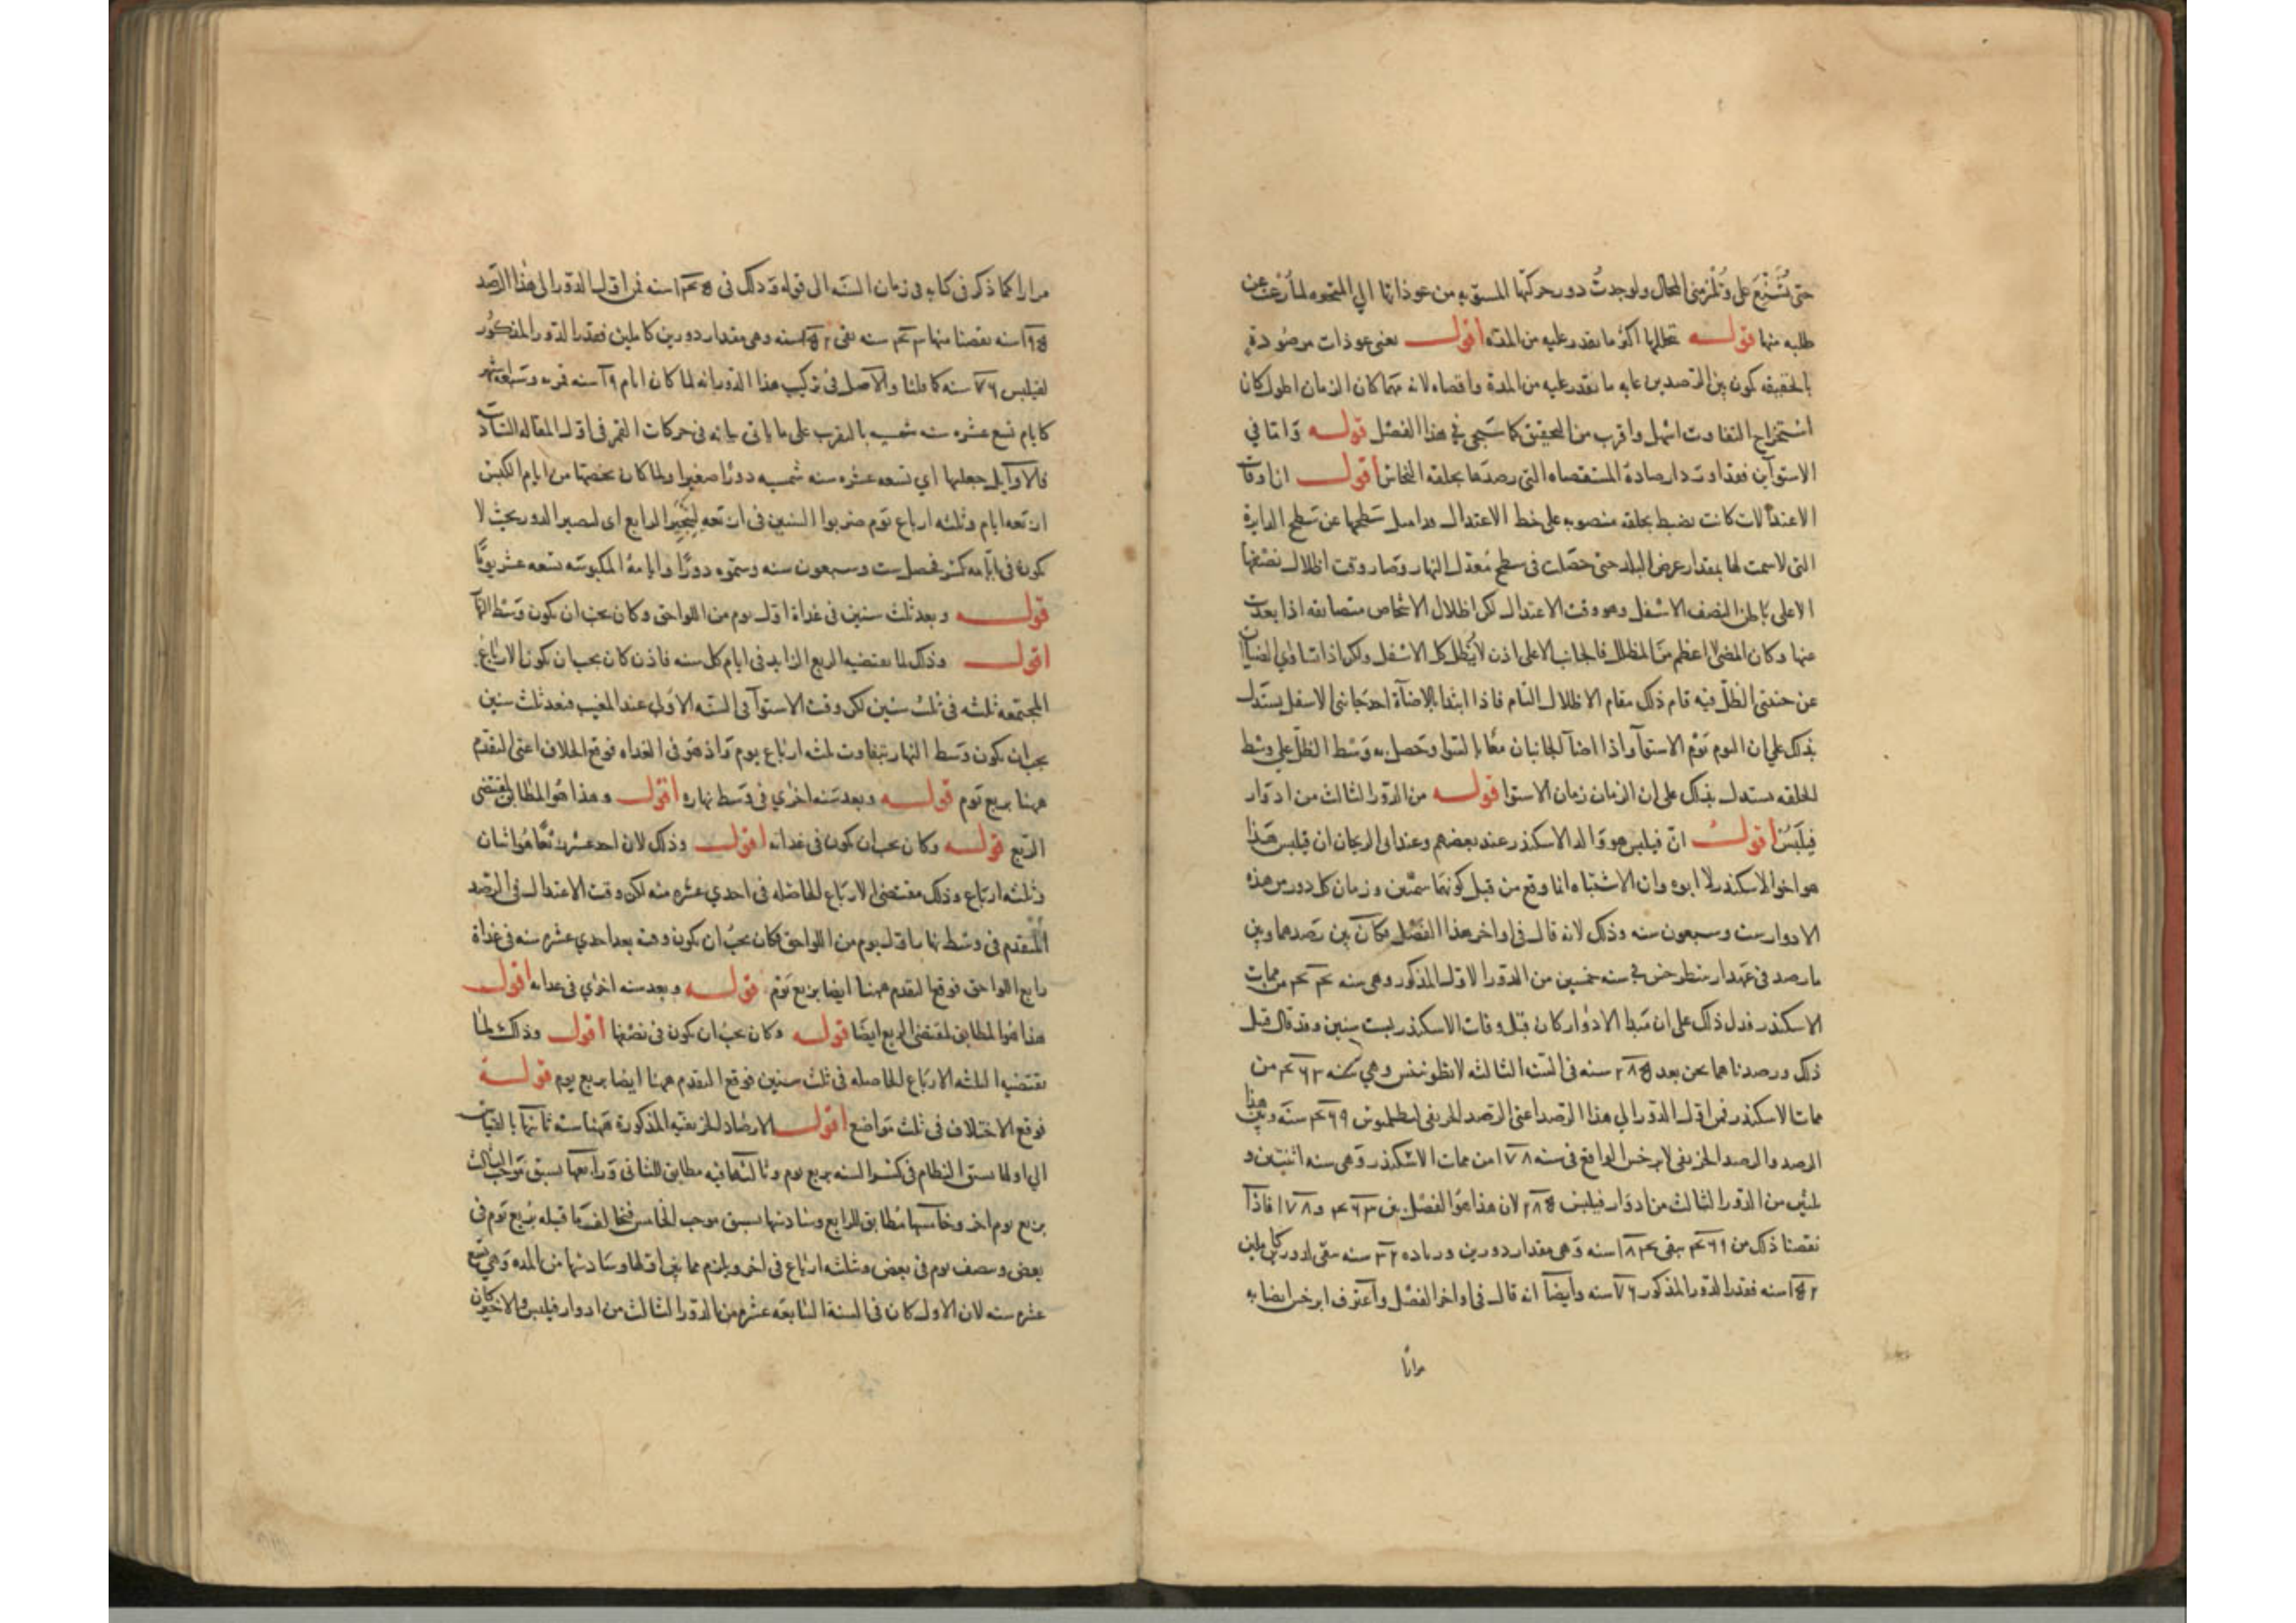 حتى يُشنّع على وتُلزمنى المحال ولو وجدتُ دور حركتها المستويه من عوداتها الى المتحيره لما رغبت عن
طلبه منها قولـــه تخللها اكثر ما نقدر عليه من المدّه اقول يعنى عودات مرصودة
بالحقيقه يكون بين الرّصدين غايه ما نقدر عليه من المدة واقصاه لانه مهما كان الزمان اطول كان
استخراج التفاوت اسهل واقرب من التحقيق كما سَيجى فى هذا الفصْل قولـــه وَامّا فى
الاستوآين فقد اوردت ارصادة المستقصاه التى رصدَها بحلقه النحاس اقول ان اوقات
الاعتدالات كانت تضبط بحلقه منصوبه على خط الاعتدال مداميل سَطحها عن سَطح الدايرة
التى لاسمت لها بمقدار عرض البلد حتى حصَلت فى سطح مُعدّل النهار وصَار وقت اظلال نصْفها
الاعلى بالنصف الاسْفل وهو وقت الاعتدال لكن اظلال الاشخاص متضايقه اذا بعدت
عنها وكان المضئ اعظم من المظلل فالجانب الاعلى اذن لا يُظل كل الاسْفل ولكن اذا تساوى الضياآن
عن جنبتى الظلّ فيه قام ذلك مقام الاظلال التام فاذا ابتدا بالاضآة احد جانبى الاسفل يستدل
بذلك على ان اليوم يَوْم الاستوآ واذا اضآ الجانبان معًا بالسّوا وحصل به وَسْط الظلّ على وسْط
الحلقه يستدل بذلك على ان الزمان زمان الاستوا قولـــه من الدّور الثالث من ادوار
فيلبّسْ أقول انّ فيلبس هو وَالد الاسكندر عند بعضهم وعند ابى الريحان ان فيلبس هَذا
هو اخو الاسكندر لا ابوه وان الاشتباه انما وقع من قبل كونهمَا سَميّين وزمان كل دور من هذه
الادوار ست وسبعون سنه وذلك لانه قال فى اواخر هذا الفَصْل فكان بين رَصدهما وبين
ما رصد فى عهد ارسطرخس فى سنه خمسين من الدّور الاول المذكور وهى سنه ٤٤ من ممات
الاسكندر فدل ذلك على ان مَبدا الادْوار كان قبل وفات الاسكندر بست سنين وقد قال قبل
ذلك ورصدناهما نحن بعد ٢٨٥ سنه فى السّنه الثالثه لانطونينس وهى سنه ٤٦٣ من
ممات الاسكندر فمن اوّل الدّور الى هذا الرّصد اعنى الرّصد الخريفى لبطلميوس ٤٦٩ سنَه وبين هذا
الرصد والرصد الخريفى لابرخس الواقع فى سنه ١٧٨ من ممات الاسْكندر وَهى سنه اثنيتين و
ثلثين من الدّور الثالث من ادوَار فيلبس ٢٨٥ لان هذا هوَ الفصْل بين ٤٦٣ و ١٧٨ فاذا
نقصنا ذلك من ٤٦٩ يبقى ١٨٤ سنه وَهى مقدار دورين وزياده ٣٢ سنه يبقى لدورين كاملين
١٥٢ سنه فقدر الدّور المذكور ٧٦ سنه وأيضاً انه قال فى اواخر الفَصْل واعترف ابرخس ايضا به
مرارًا
مرارا كما ذكر فى كتابه فى زمان السّنه الى قوله وَذلك فى سنه فمن اوّل الدّور الى هذا الرّصد
سنه نقصنا منها سنه بقى ١٥٢ سنه وهى مقدار دورين كاملين فقدر الدّور المذكُور
لفيلبس ٧٦ سنه كما قلنا والاصل فى تركيب هذا الدّور انه لما كان ايام ١٩ سنه قمريه وسَبعة اشهر
كايام تسع عشره سنه شمسيه بالتقريب على ما ياتى بيانه فى حركات القمر فى اوّل المقاله الثالثه
فالاوآيل جعلوها اى تسعه عشره سنه شمسيه دورًا صغيرا ولما كان يخصّها من ايام الكبس
اربعه ايام وثلثه ارباع يَوْم ضربوا السّنين فى اربَعه لينجبر الرابع اى ليصير الدور بحيث لا
يكون فى ايّامه كسْر فحصل ست وسبعون سنه وسمّوه دورًا وايامهُ المكبوسَه تسعه عشر يومًا
قولـــه وبعد ثلث سنين فى غداة اوّل يوم من اللواحق وكان يجب ان يكون وَسْط النهار
اقول وذلك لما يقتضيه الربع الزايد فى ايام كل سنه فاذن كان يجب ان يكون الارباع
المجتمعه ثلثه فى ثلث سنين لكن وقت الاستوآ فى السّنه الاولى عند المغيب فبعد ثلث سنين
يجب ان يكون وَسط النهار بتفاوت ثلثه ارباع يوم وَاذ هوَ فى الغداه فوقع الخلاف اعنى التقدّم
ههنا بربع يَوم قولـــه وبعد سَنه اخرى فى وَسط نهاره اقول وهذا هوَ المطابق لمقتضى
الرّبع قولـــه وكان يجب ان يكون فى غداته اقول وذلك لان احد عشر رُبعًا هوَ اثنان
وثلثه ارباع وذلك مقتضى الارباع الحاصله فى احدى عشره سنه لكن وقت الاعتدال فى الرّصد
المتقدم فى وسْط نهار اوّل يوم من اللواحق فكان يجبُ ان يكون وقته بعد احدى عشره سنه فى غداة
رابع اللواحق فوقع التقدم ههنا ايضا بربع يَوْم قولـــه وبعد سنه اخرى فى غداته اقول
هذا هوَ المطابق لمقتضى الربع ايضًا قولـــه وكان يجبُ ان يكون فى نصْفها اقول وذلك لما
يقتضيه الثلثه الارباع الحاصله فى ثلث سنين فوقع التقدم ههنا ايضا بربع يوم قولـــه
فوقع الاختلاف فى ثلث مَواضع اقول الارصَاد الخريفيه المذكورة ههُنا ستّه ثانيها بالقياس
الى اولها يسبق النظام فى كسْر السنه بربع يوم وثالثها فيه مطابق للثانى وَرابعها يسبق مَوجب الثالث
بربع يوم اخر وخامسها مُطابق للرابع وسَادسها يسبق موجب الخامس فتخالف ما قبله بربع يَوم فى
بعض ونصف يوم فى بعض وثلثه ارباع فى اخر ويلزم مما بين اوّلها وسَادسها من المده وَهى تسع
عشره سنه لان الاول كان فى السنة السّابعَه عشره من الدّور الثالث من ادوار فيلبس والاخير كان